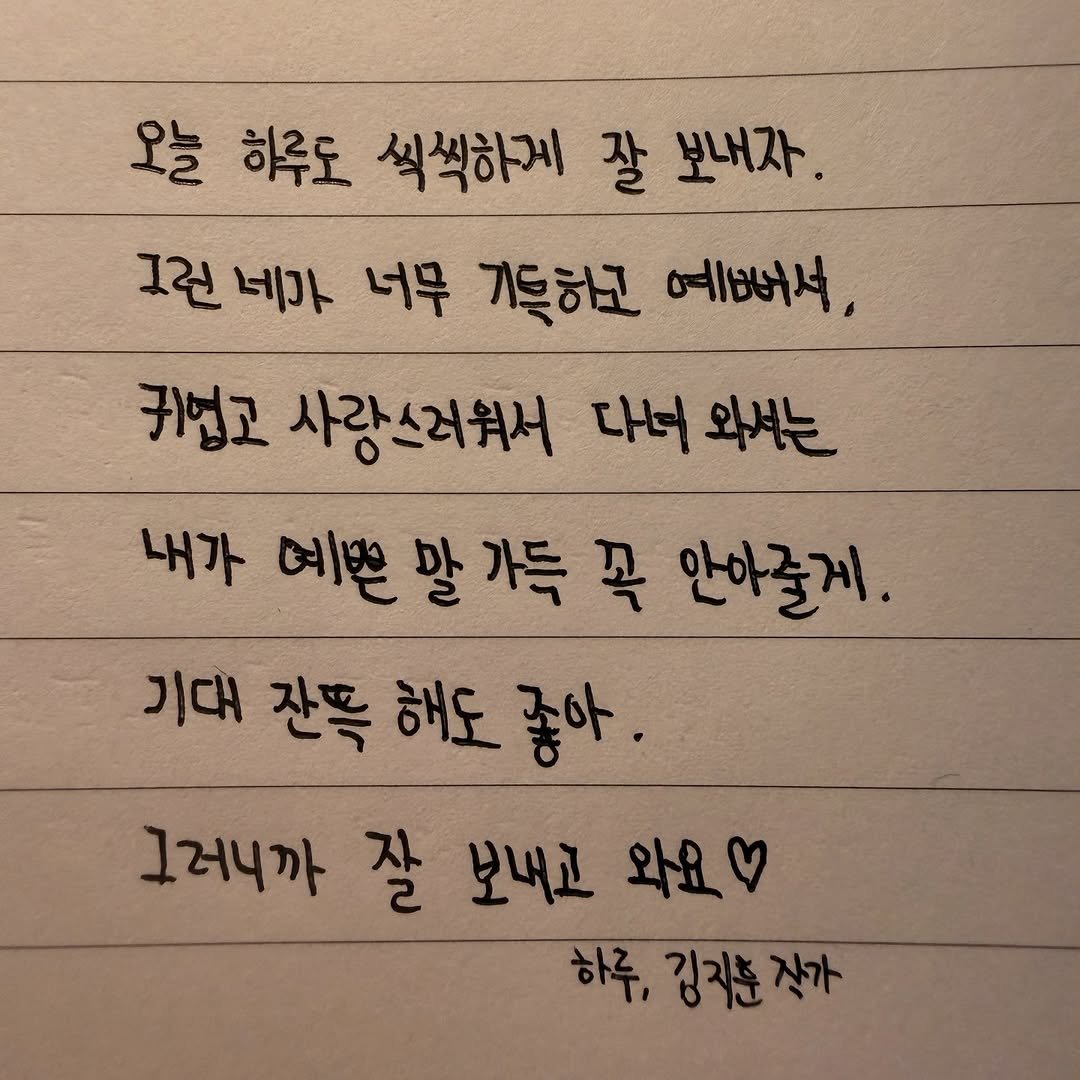 오늘 하루도 씩씩하게 잘 보내자.
그런 네가 너무 기특하고 예뻐서,
귀엽고 사랑스러워서 다녀 와서는
내가 예쁜 말 가득 꼭 안아줄게.
기대 잔뜩 해도 좋아.
그러니까 잘 보내고 와요♡
하루, 김지훈 작가